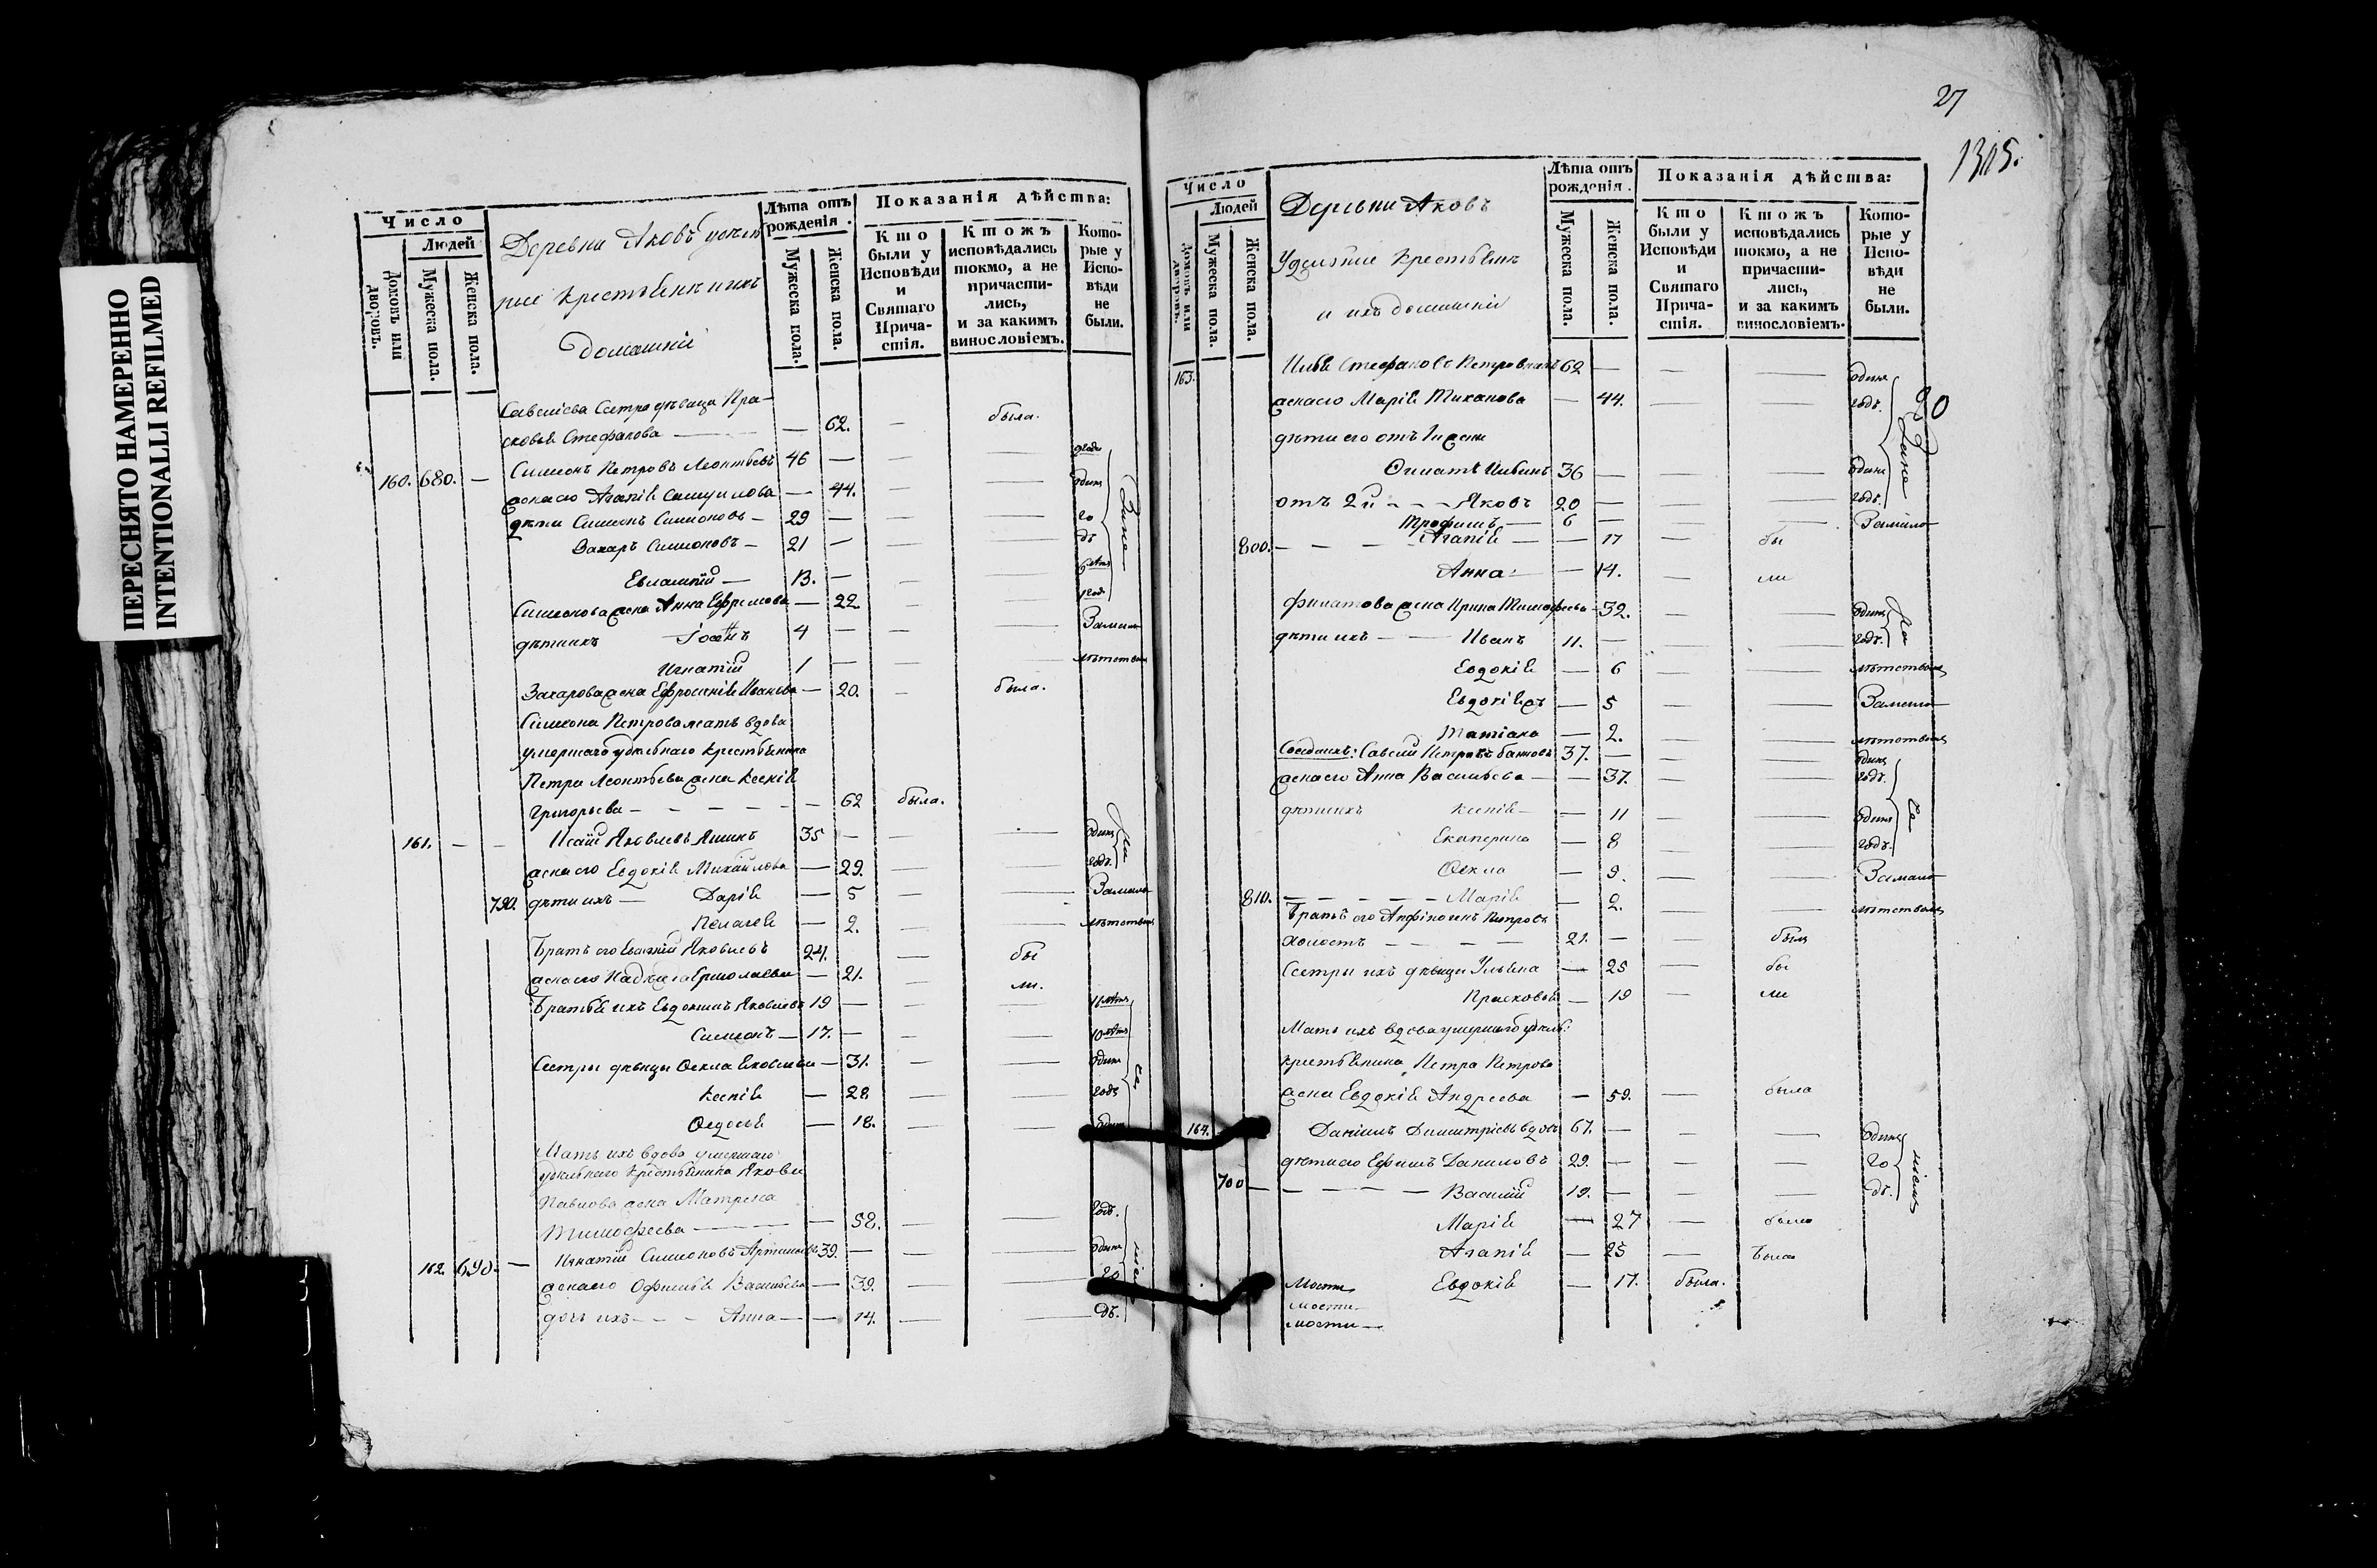 ПЕРЕСНЯТО НАМЕРЕННО
INTENTIONALLI REFILMED
Число
Людей
Домовъ или дворовъ.
Мужеска пола.
Женска пола.
Деревни Яковъ
рые крестьяни ихъ
домашніи
Лѣта отъ рожденія.
Мужеска пола.
Женска пола.
Показанія дѣйства:
Кто были у Исповѣди и Святаго Причастія.
Ктожъ исповѣдались токмо, а не причастились, и за какимъ винословіемъ.
Которые у Исповѣди не были.
Савелієва Сестра дѣвица Пра-
сковья Стефанова — — 62. — была.
160. 680. — Симеонъ Петровъ Леонтьевъ 46 — —
жена его Агапія Самуилова — 44. —
дѣти Симеонъ Симеоновъ — 29 — —
Захаръ Симеоновъ — 21 — —
Евлампій — 13. — —
Симеонова жена Анна Ефремова — 22 —
дѣти ихъ Іоаннъ 4 — — Замало
Игнатій 1 — — лѣтствомъ
Захарова жена Ефросинія Иванова — 20. — была.
Симеона Петрова мать вдова
умершаго удѣльнаго крестьянина
Петра Леонтьева жена Ксенія
Григорьева — — 62 была.
161. — — Исаій Яковлевъ 35 — — одинъ
жена его Евдокія Михайлова — 29. — годъ.
790. дѣти их — Дарія — 5 — Замало
Пелагея — 2. — лѣтствомъ
Братъ его Евгеній Яковлевъ 24. — бы
жена его Надежда Ермолаева — 21. — ли.
Братья ихъ Евдокимъ Яковлевъ 19 — —
Симеонъ — 17. — —
Сестры дѣвицы Ѳекла Яковлева — 31. — одинъ
Ксенія — 28. — годъ
Ѳедосья — 18. —
Мать ихъ вдова умершаго
удѣльнаго крестьянина Якова
Павлова жена Матрена
Тимофеева — — 58. — годъ.
162. 690. — Игнатій Симеоновъ 39. — — одинъ
жена его Офимья Васильева — 39. — го
дочь ихъ — — — Анна — — 14. — дъ.
27
1315.
Число
Людей
Домовъ или дворовъ.
Мужеска пола.
Женска пола.
Деревни Яковъ
Удельные крестьяне
и ихъ домашніи
Лѣта отъ рожденія.
Мужеска пола.
Женска пола.
Показанія дѣйства:
Кто были у Исповѣди и Святаго Причастія.
Ктожъ исповѣдались токмо, а не причастились, и за какимъ винословіемъ.
Которые у Исповѣди не были.
163. Илья Стефановъ 62 — — одинъ
жена его Марія — 44. — годъ.
дѣти его отъ 1й жены
Филатъ Ильинъ 36 — — одинъ
отъ 2й — — Яковъ 20 — — годъ.
Трофимъ — 6 — — Замало
800. — — — Агапія — — 17 — бы
Анна — — 14. — ли
Филатова жена Ирина Тимофеева — 32. — одинъ
дѣти ихъ — — Иванъ 11. — — годъ.
Евдокія — 6 — лѣтствомъ
Евдокія — 5 — Замало
Татіана — 2. — лѣтствомъ
Савелій Петровъ 37. — — одинъ
жена его Анна Васильева — — 37. — годъ.
дѣти ихъ Ксенія — — 11 — одинъ
Екатерина — 8 — годъ.
Ѳекла — 9. — Замало
810. — — — Марія — 2. — лѣтствомъ
Братъ его Петровъ
холостъ — — — — 21. — — былъ
Сестры ихъ дѣвицы Ульяна — 25 — бы
Прасковья — 19 — ли
Мать ихъ вдова умершаго удѣль:
крестьянина Петра Петрова
жена Евдокія Андреева — 59. — была
164. Даніилъ Димитріевъ вдовъ 67. — — одинъ
дѣти его Ефимъ Даниловъ 29. — — го
700 — — — Василій 19. — — дъ.
Марія — 27 — была
Агапія — 25 — была
Евдокія — 17. была.